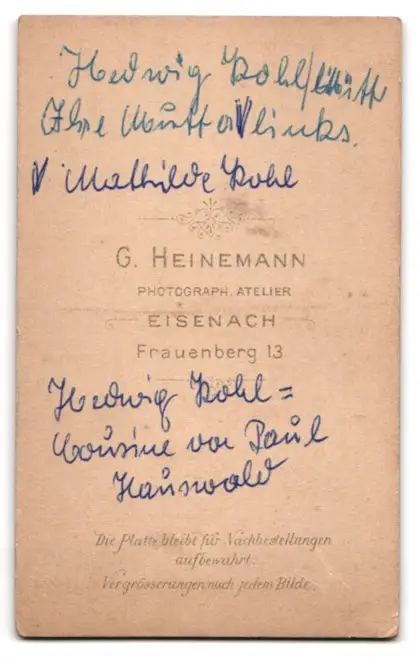 Hedwig Kohl / Mitte
Ihre Mutter V links.
V Mathilde Kohl
G. HEINEMANN
PHOTOGRAPH. ATELIER
EISENACH
Frauenberg 13
Hedwig Kohl =
Cousine von Paul
Hauswald
Die Platte bleibt für Nachbestellungen
aufbewahrt.
Vergrösserungen nach jedem Bilde.